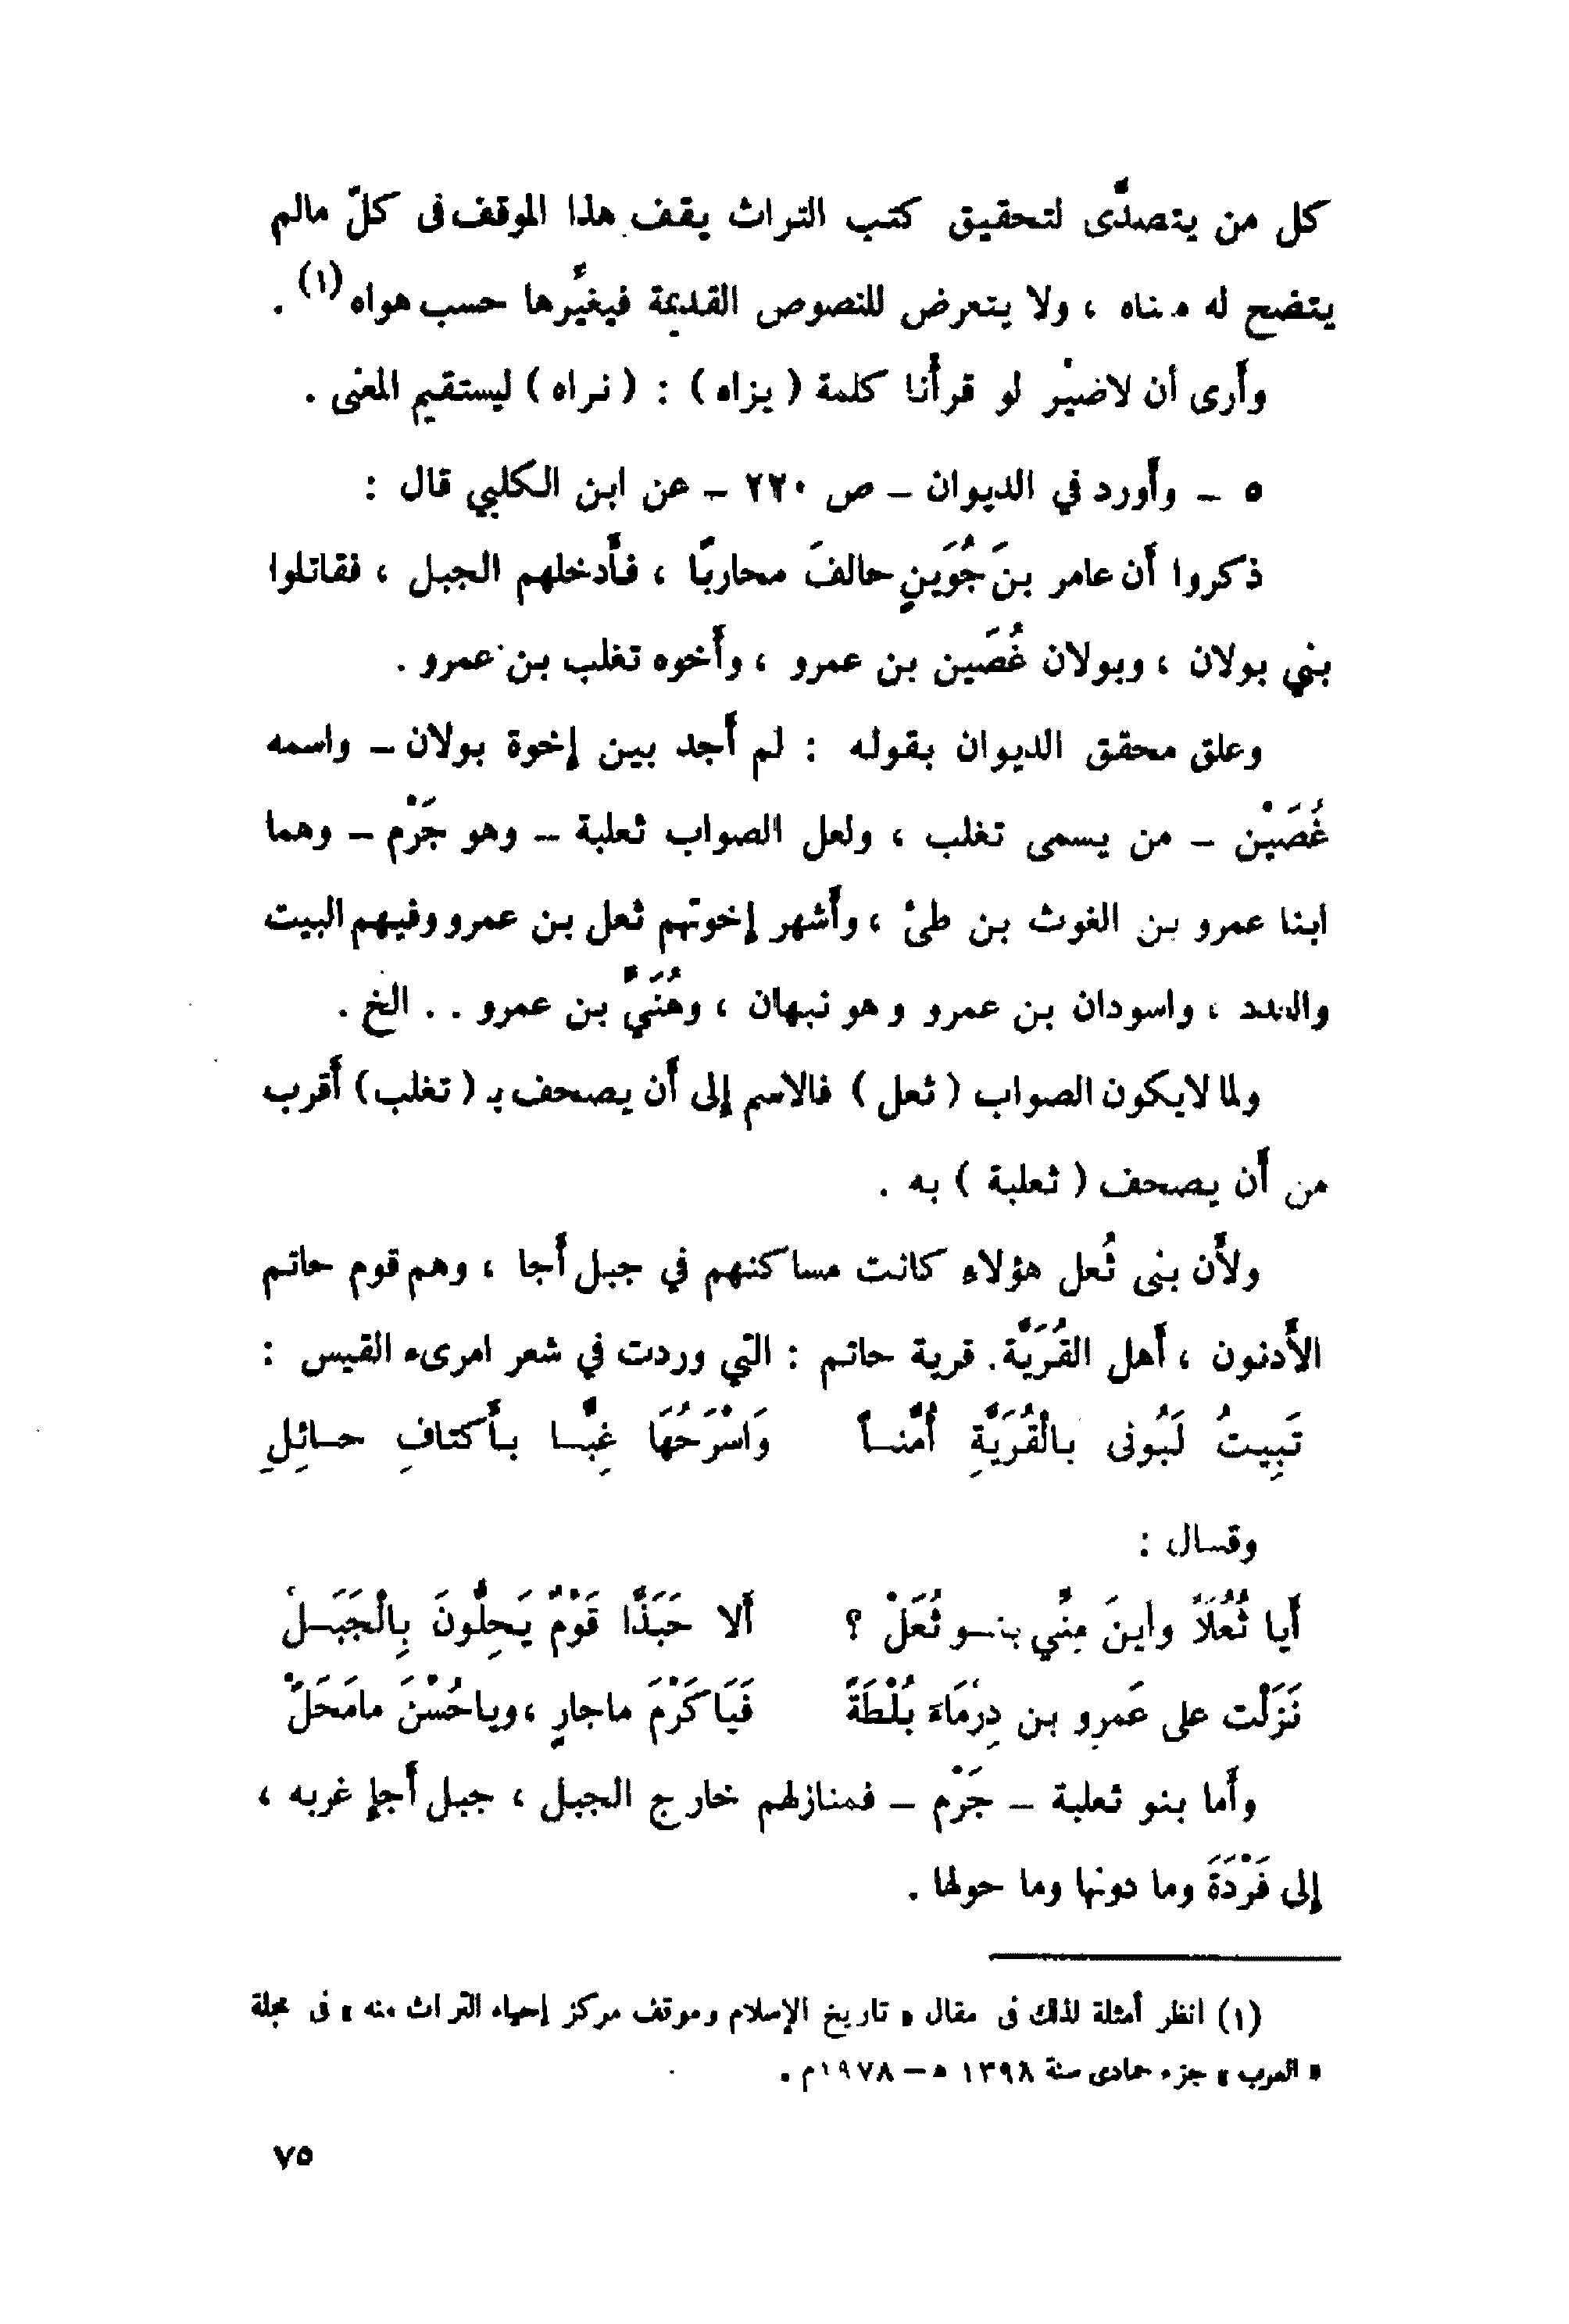 كل من يتصدَّى لتحقيق كتب التراث يقف هذا الموقف فى كلّ مالم
يتضح له معناه ، ولا يتعرض للنصوص القديمة فيغيِّرها حسب هواه (١) .
وأرى أن لاضيْر لو قرأنا كلمة ( يزاه ) : ( نراه ) ليستقيم المعنى .
٥ – وأورد في الديوان – ص ٢٢٠ – عن ابن الكلبي قال :
ذكروا أن عامر بنَ جُوَينٍ حالفَ محاربًا ، فأدخلهم الجبل ، فقاتلوا
بني بولان ، وبولان غُصَين بن عمرو ، وأخوه تغلب بن عمرو .
وعلق محقق الديوان بقوله : لم أجد بين إخوة بولان – واسمه
غُصَيْن – من يسمى تغلب ، ولعل الصواب ثعلبة – وهو جَرْم – وهما
ابنا عمرو بن الغوث بن طئ ، وأشهر إخوتهم ثعل بن عمرو وفيهم البيت
والعدد ، واسودان بن عمرو وهو نبهان ، وهُنَيُّ بن عمرو . . الخ .
ولما لايكون الصواب ( ثعل ) فالاسم إلى أن يصحف بـ ( تغلب ) أقرب
من أن يصحف ( ثعلبة ) به .
ولأن بنى ثُعل هؤلاءِ كانت مساكنهم في جبل أجا ، وهم قوم حاتم
الأدنون ، أهل القُرَيَّة . قرية حاتم : التي وردت في شعر امرىء القيس :
تَبِيتُ لَبُونى بالْقُرَيَّةِ أُمَّنــاً وَاسْرَحُهَا غِبًّــا بأَكتافِ حــائِلِ
وقــال :
أَيا ثُعَلاً وأينَ مِنِّي بنــو ثُعَلْ ؟ أَلا حَبَذَّا قَوْمٌ يَحِلُّونَ بِالْجَبَــلْ
نَزَلْت على عَمرِو بن دِرْمَاءَ بُلْطَةً فَيَا كَرْمَ ماجارٍ ، وياحُسْنَ مامَحَلّْ
وأما بنو ثعلبة – جَرْم – فمنازلهم خارج الجبل ، جبل أجإ غربه ،
إلى فَرْدَةَ وما دونها وما حولها .
(١) انظر أمثلة لذلك فى مقال « تاريخ الإسلام وموقف مركز إحياء التراث منه » فى مجلة
« العرب » جزء جمادى سنة ١٣٩٨ هـ – ١٩٧٨م .
٧٥